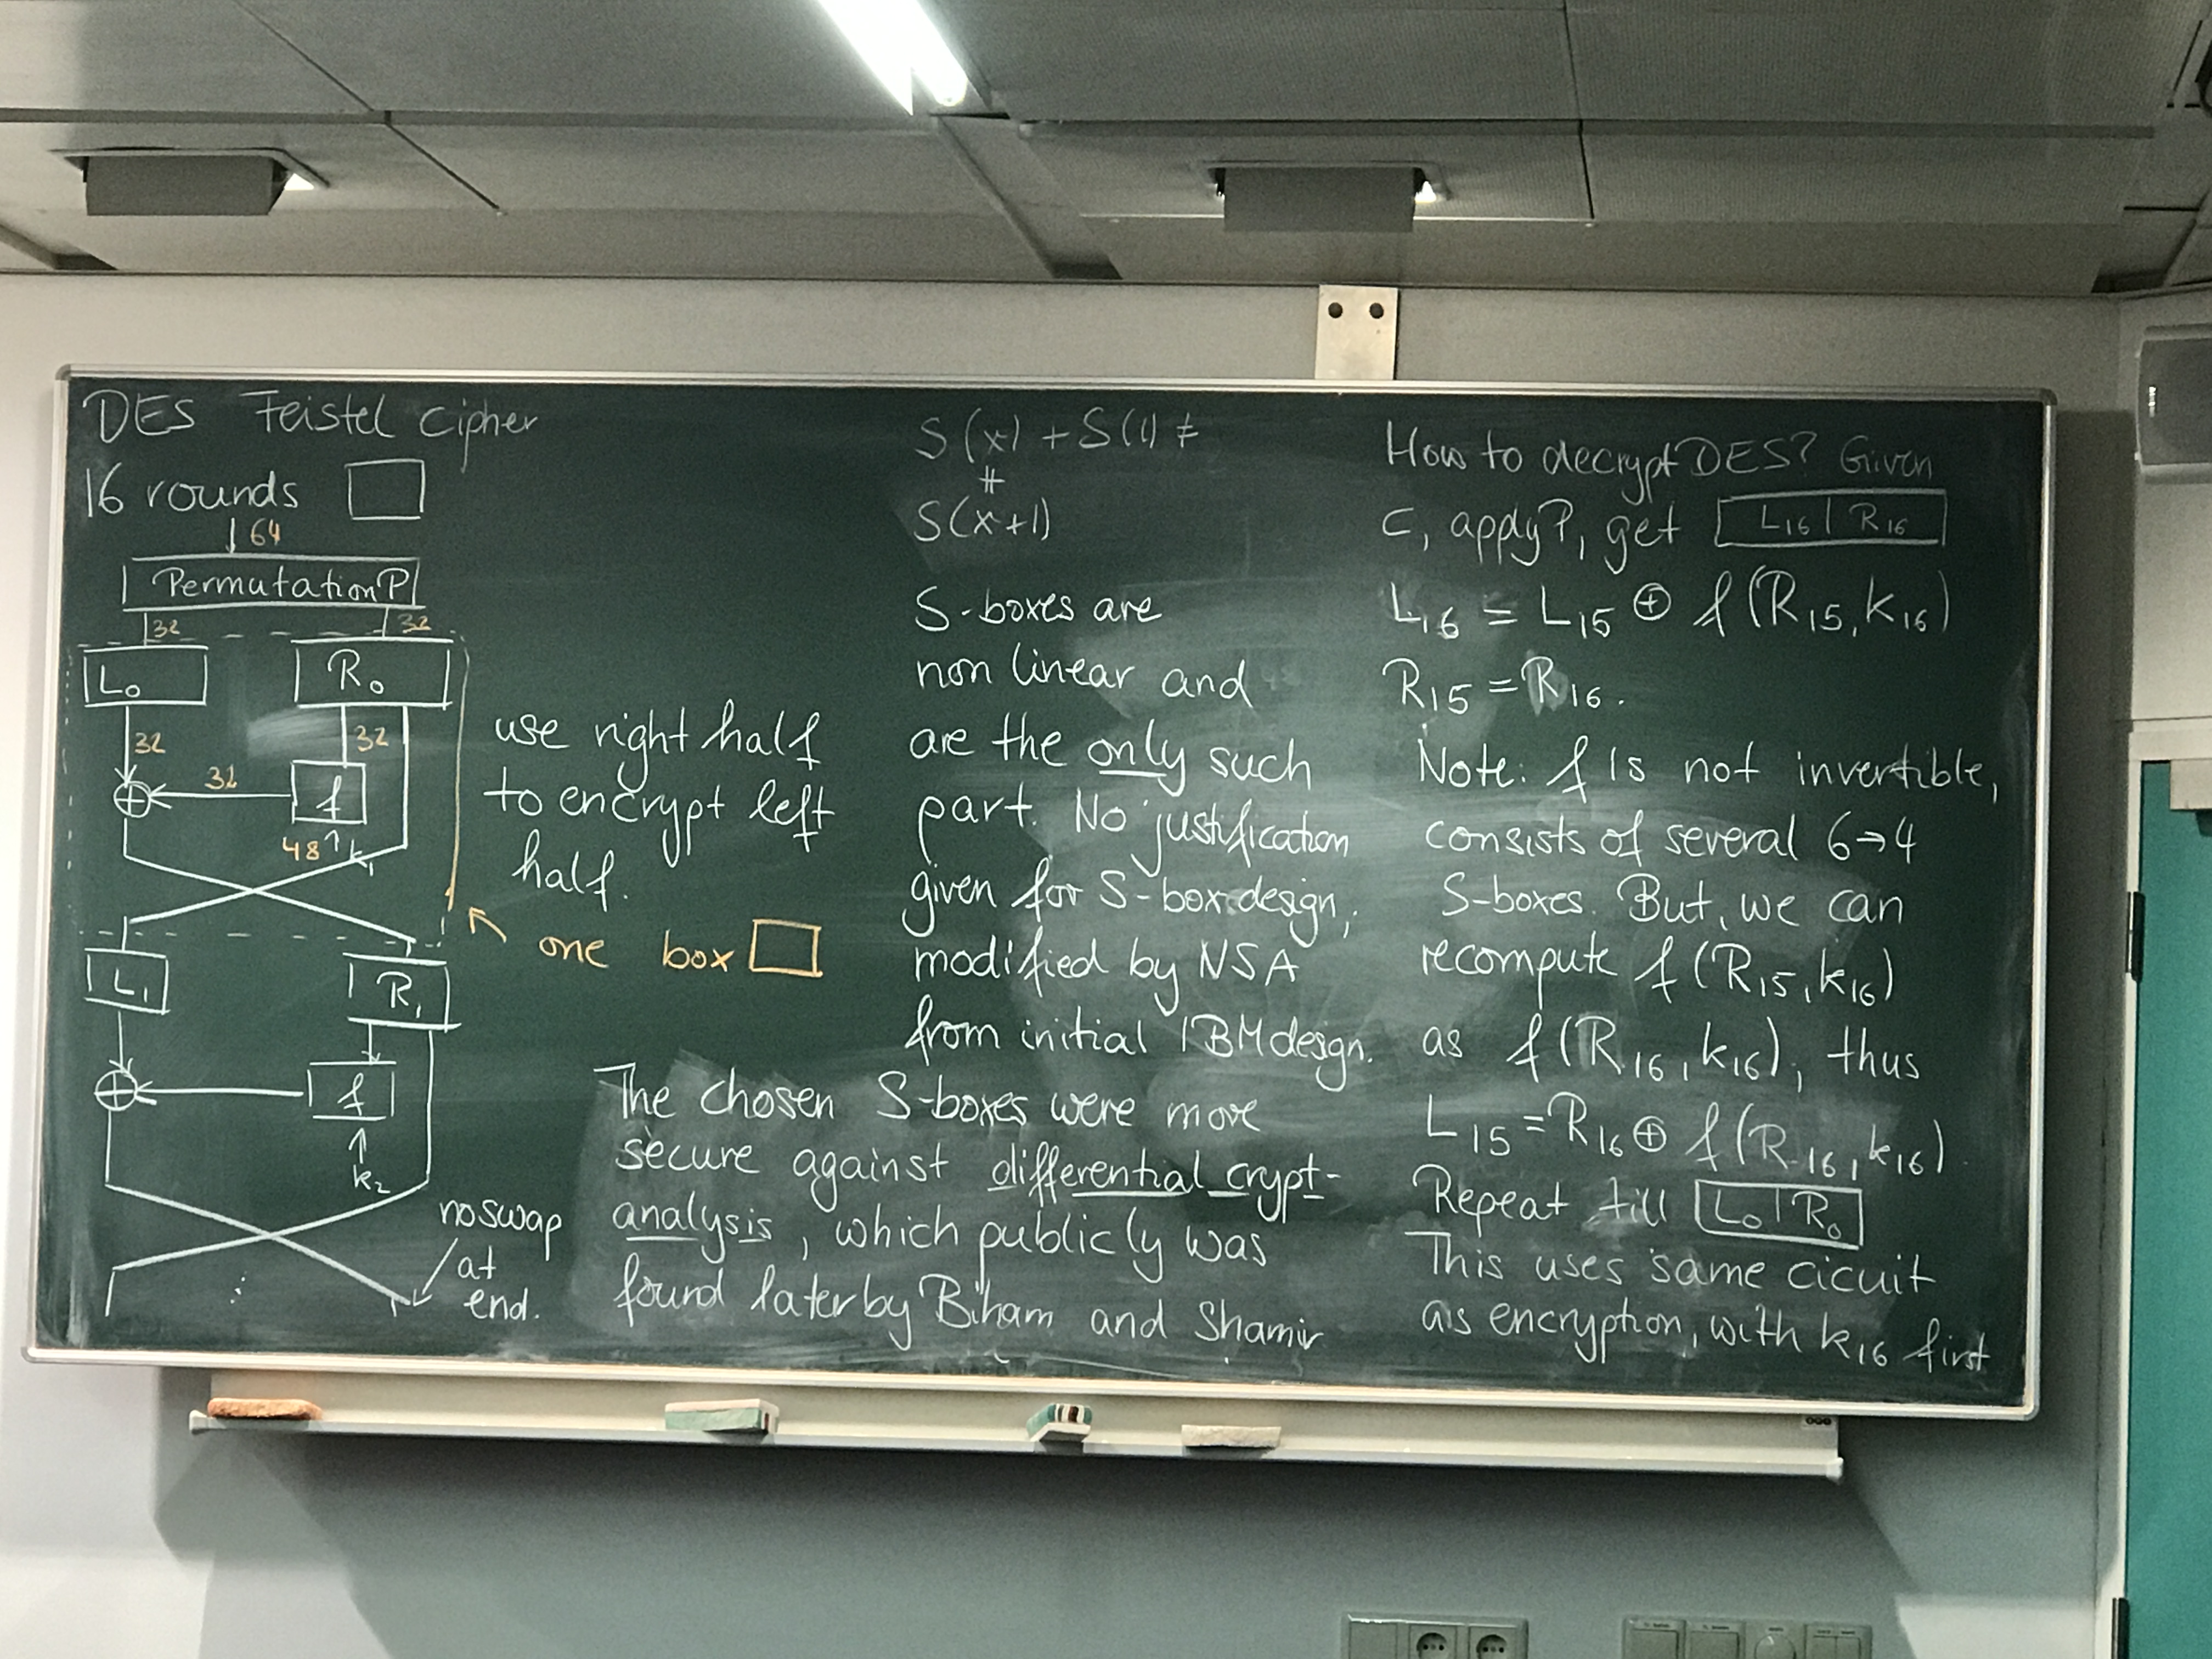 DES Feistel cipher
16 rounds
64
Permutation P
32 32
L₀ R₀
32 32
32 f
48 k₁
L₁ R₁
f
k₂
no swap
at
end.
use right half
to encrypt left
half.
one box
S(x) + S(1) ≠
≠
S(x+1)
S-boxes are
non linear and
are the only such
part. No justification
given for S-box design,
modified by NSA
from initial IBM design.
The chosen S-boxes were more
secure against differential crypt-
analysis, which publicly was
found later by Biham and Shamir
How to decrypt DES? Given
C, apply P, get L₁₆ | R₁₆
L₁₆ = L₁₅ ⊕ f(R₁₅, k₁₆)
R₁₅ = R₁₆.
Note: f is not invertible,
consists of several 6→4
S-boxes. But, we can
recompute f(R₁₅, k₁₆)
as f(R₁₆, k₁₆), thus
L₁₅ = R₁₆ ⊕ f(R₁₆, k₁₆).
Repeat till L₀ | R₀
This uses same cicuit
as encryption, with k₁₆ first